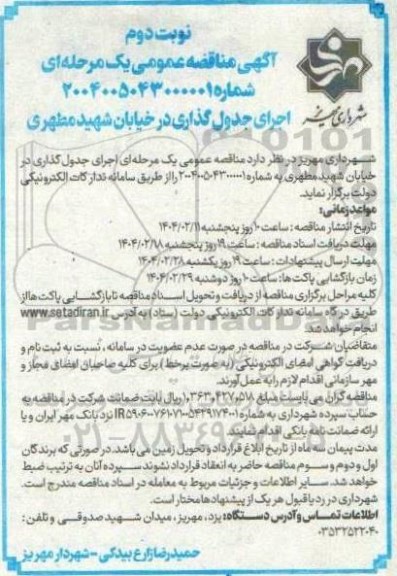 نوبت دوم
آگهی مناقصه عمومی یک مرحله‌ای
شماره ۲۰۰۴۰۰۵۰۴۳۰۰۰۰۰۱
اجرای جدول گذاری در خیابان شهید مطهری
شهرداری مهریز
شهرداری مهریز در نظر دارد مناقصه عمومی یک مرحله‌ای اجرای جدول گذاری در
خیابان شهید مطهری به شماره ۲۰۰۴۰۰۵۰۴۳۰۰۰۰۰۱ را از طریق سامانه تدارکات الکترونیکی
دولت برگزار نماید.
مواعد زمانی:
تاریخ انتشار مناقصه : ساعت ۱۰ روز پنجشنبه ۱۴۰۴/۰۲/۱۱
مهلت دریافت اسناد مناقصه : ساعت ۱۹ روز پنجشنبه ۱۴۰۴/۰۲/۱۸
مهلت ارسال پیشنهادات : ساعت ۱۹ روز یکشنبه ۱۴۰۴/۰۲/۲۸
زمان بازگشایی پاکت‌ها: ساعت ۱۰ روز دوشنبه ۱۴۰۴/۰۲/۲۹
کلیه مراحل برگزاری مناقصه از دریافت و تحویل اسناد مناقصه تا بازگشایی پاکت‌ها از
طریق درگاه سامانه تدارکات الکترونیکی دولت (ستاد) به آدرس www.setadiran.ir
انجام خواهد شد.
متقاضیان شرکت در مناقصه در صورت عدم عضویت در سامانه، نسبت به ثبت نام و
دریافت گواهی امضای الکترونیکی (به صورت برخط) برای کلیه صاحبان امضای مجاز و
مهر سازمانی اقدام لازم را به عمل آورند.
مناقصه گران می بایست مبلغ ۱,۰۳۶۳,۴۳۷,۰۵۱۸ ریال بابت ضمانت شرکت در مناقصه به
حساب سپرده شهرداری به شماره نزد بانک مهر ایران و یا
ارائه ضمانت نامه بانکی اقدام نمایند.
مدت پیمان سه ماه از تاریخ ابلاغ قرارداد و تحویل زمین می باشد. در صورتی که برندگان
اول و دوم و سوم مناقصه حاضر به انعقاد قرارداد نشوند سپرده آنان به ترتیب ضبط
خواهد شد. سایر اطلاعات و جزئیات مربوط به معامله در اسناد مناقصه مندرج است.
شهرداری در رد یا قبول هر یک از پیشنهادها مختار است.
اطلاعات تماس و آدرس دستگاه: یزد، مهریز، میدان شهید صدوقی و تلفن:
۰۳۵۳۲۵۲۲۰۴۰
حمیدرضا زارع بیدکی - شهردار مهریز